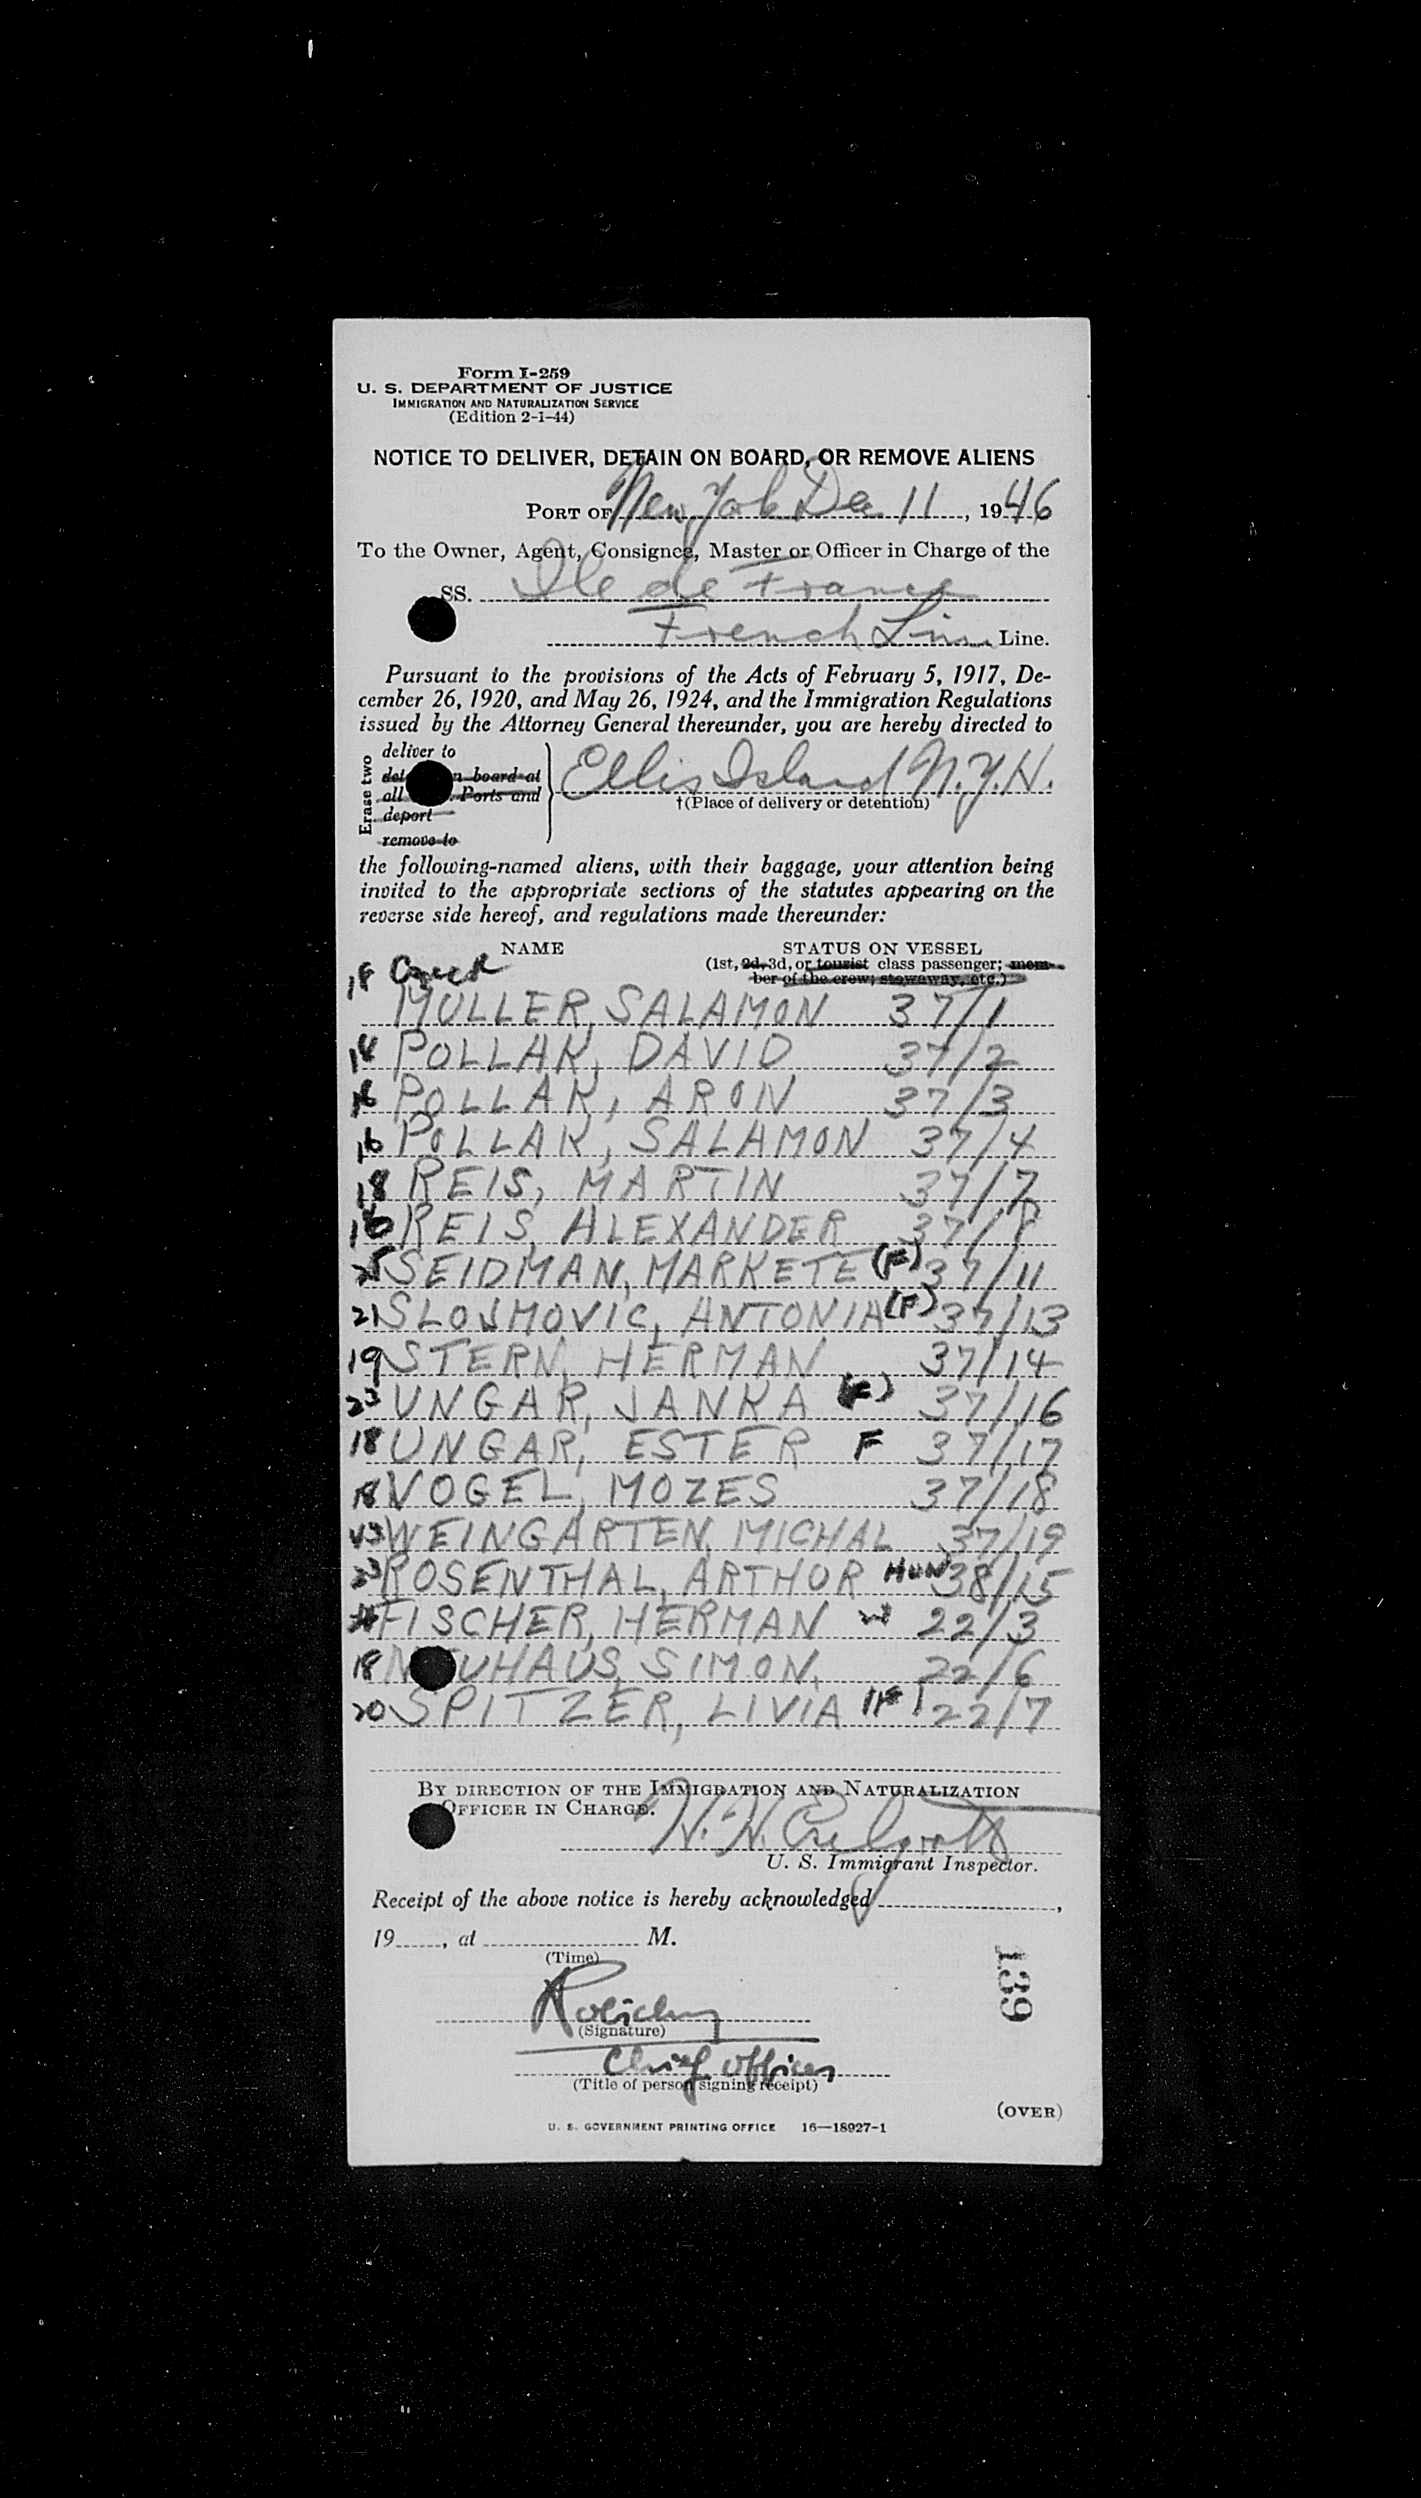 Form I-259
U. S. DEPARTMENT OF JUSTICE
IMMIGRATION AND NATURALIZATION SERVICE
(Edition 2-1-44)
NOTICE TO DELIVER, DETAIN ON BOARD, OR REMOVE ALIENS
PORT OF New York Dec 11, 1946
To the Owner, Agent, Consignee, Master or Officer in Charge of the
SS. Ile de France
French Line Line.
Pursuant to the provisions of the Acts of February 5, 1917, De-
cember 26, 1920, and May 26, 1924, and the Immigration Regulations
issued by the Attorney General thereunder, you are hereby directed to
Erase two
deliver to
board at
all Ports and
deport
remove to
Ellis Island N.Y.H.
†(Place of delivery or detention)
the following-named aliens, with their baggage, your attention being
invited to the appropriate sections of the statutes appearing on the
reverse side hereof, and regulations made thereunder:
NAME STATUS ON VESSEL
(1st, 2d, 3d, or tourist class passenger; mem-
ber of the crew; stowaway, etc.)
18 Czech
MULLER, SALAMON 37/1
14 POLLAK, DAVID 37/2
POLLAK, ARON 37/3
16 POLLAK, SALAMON 37/4
18 REIS, MARTIN 37/7
16 REIS, ALEXANDER 37/8
SEIDMAN, MARKETE (F) 37/11
21 SLOJMOVIC, ANTONIA (F) 37/13
19 STERN, HERMAN 37/14
23 UNGAR, JANKA (F) 37/16
18 UNGAR, ESTER F 37/17
18 VOGEL, MOZES 37/18
WEINGARTEN, MICHAL 37/19
23 ROSENTHAL, ARTHUR HUN 38/15
FISCHER, HERMAN 22/3
18 NEUHAUS, SIMON, 22/6
20 SPITZER, LIVIA (F) 22/7
BY DIRECTION OF THE IMMIGRATION AND NATURALIZATION
OFFICER IN CHARGE.
U. S. Immigrant Inspector.
Receipt of the above notice is hereby acknowledged ,
19 , at M.
(Time)
(Signature)
Chief officer
(Title of person signing receipt)
139
(OVER)
U. S. GOVERNMENT PRINTING OFFICE 16—18927-1